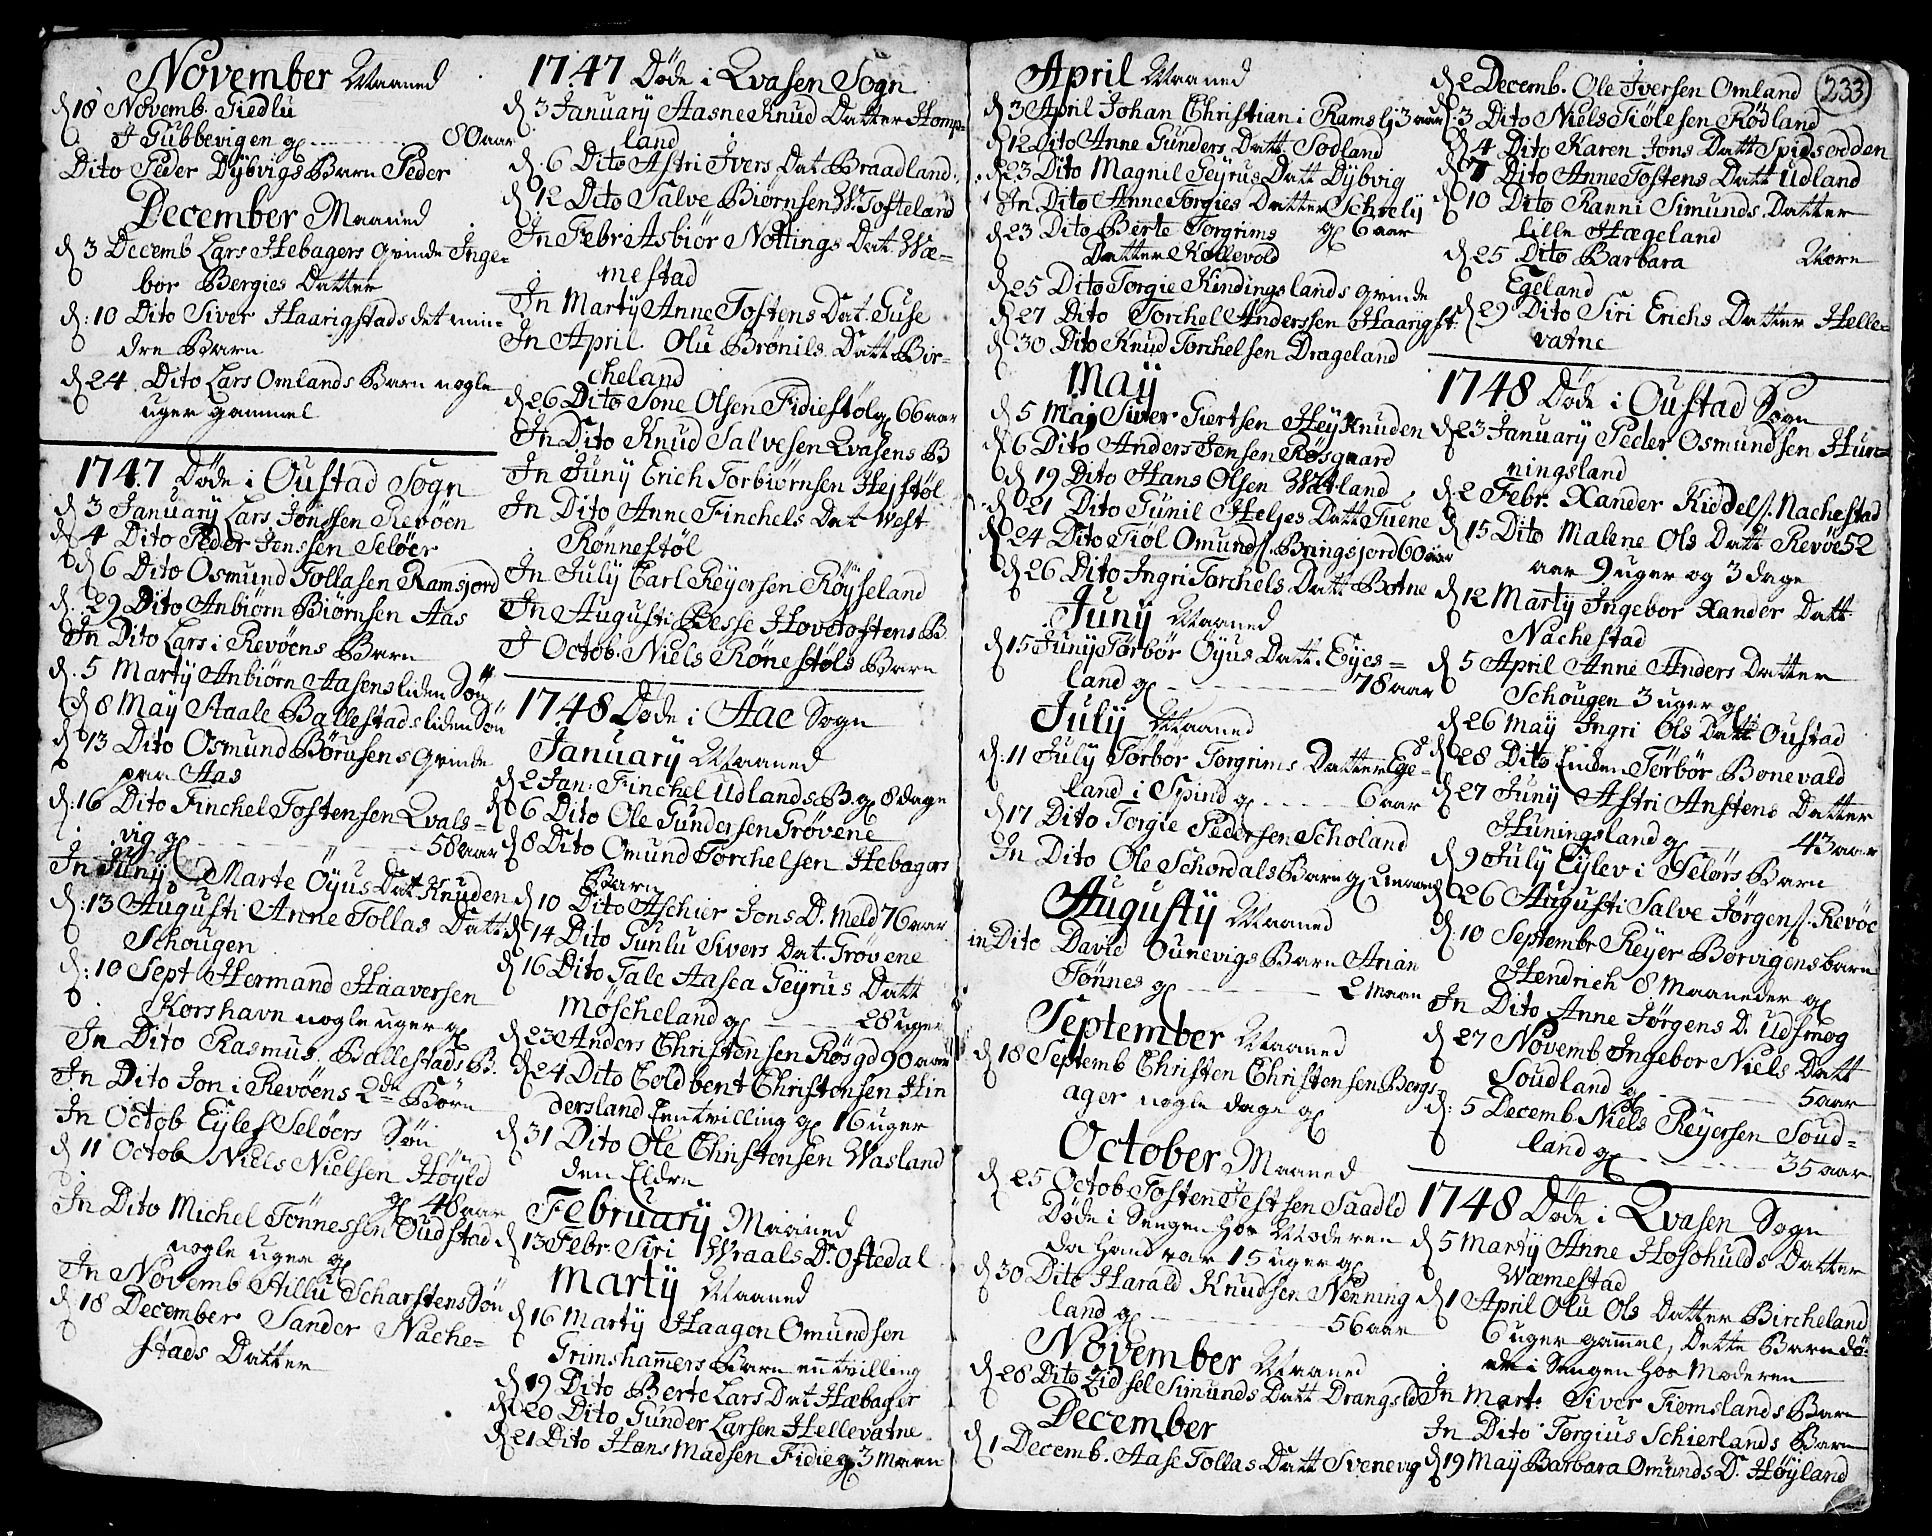 November Maaned
d 18 Novemb. Giedlu
I Gubbevigen g. 80 aar
Dito Peder Dybvigs Barn Peder
December Maaned
d 3 Decemb Lars Hebagers qvinde Inge-
bor Bergies Datter
d: 10 Dito Siver Haarigstads det min-
dre Barn
d 24 Dito Lars Omlands Barn nogle
uger gammel
1747 Døde i Oustad Sogn
d 3 January Lars Jonssen Revøen
d 4 Dito Peder Jenssen Seløer
d 6 Dito Osmund Tollasen Ramsjord
d. 29 Dito Anbiørn Biørnsen Aas
In Dito Lars i Revøens Barn
d. 5 Marty Anbiørn Aasens liden Søn
d 8 May Staale Ballestads liden Søn
d 13 Dito Osmund Børusens qvinde
paa Aas
d: 16 Dito Finchel Tostensen Qvals-
vig g 58 aar
In Juny Marte Øyus Dat Knuden
d: 13 Augusti Anne Tollas Datt
Schougen
d: 10 Sept Hermand Haaversen
Korshavn nogle uger g
In Dito Rasmus Ballestads B.
In Dito Jon i Revøens 2de Børn
In Octob Eylef Seløers Søn
d 11 Octob Niels Nielsen Høyld
g 48 aar
In Dito Michel Tønnessen Oudstad
nogle uger g
In Novemb Aillu Scharstens Søn
d 18 December Sander Nache-
stads Datter
1747 Døde i Qvasen Sogn
d 3 January Aasne Knud Datter Homp-
land
d. 6 Dito Astri Ivers Dat Braadland
d 12 Dito Salve Biørnsen W. Tofteland
In Febr Asbiør Nottings Dat. Wæ-
mestad
In Marty Anne Tostens Dat. Guse
In April Olu Brønils Datt Bir-
cheland
d 26 Dito Tone Olsen Fidiestøl g 66 aar
In Dito Knud Salvesen Qvasens B
In Juny Erich Torbiørnsen Hejstøl
In Dito Anne Finchels Dat West
Rønnestøl
In July Carl Reyersen Røyseland
In Augusti Besse Hovetostens B.
I Octob. Niels Rønestøls Barn
1748 Døde i Aae Sogn
January Maaned
d 2 Jan: Finchel Udlands B. g 8 dage
d 6 Dito Ole Gundersen Grøvene
d 8 Dito Omund Torchelsen Hebagers
Barn
d 10 Dito Aschier Jons D. Meld 76 aar
d 14 Dito Gunlu Sivers Dat. Grøvene
d 16 Dito Tale Aasea Geyrus Datt
Møscheland g 28 uger
d 23 Anders Christensen Røsgd 90 aar
d 24 Dito Coldbent Christensen Hin
dersland Een tvilling g 16 uger
d 31 Dito Ole Christensen Wasland
den Eldre
February Maaned
d 13 Febr. Siri Wraals D. Oftedal
Marty Maaned
d 16 Marty Haagen Omundsen
Grimshamers Barn en tvilling
d 19 Dito Berte Lars Dat Hæbager
d 20 Dito Gunder Larsen Hellevatne
d 21 Dito Hans Madsen Fidie g 3 Maan
April Maaned
d 3 April Johan Christian i Ramslj 3 aar
d 12 Dito Anne Gunders Datt. Sodland
d 23 Dito Magnil Geyrus Datt Dybvig
In Dito Anne Torgies Datter Schrely
d 23 Dito Berte Torgrims g 6 aar
Datter Kollevold
d 25 Dito Torgie Kindingslands qvinde
d 27 Dito Torchel Anderssen Haarigst.
d 30 Dito Knud Torchelsen Drageland
May
d 5 Maj Siver Giertsen Hey Knuden
d 6 Dito Anders Jensen Røsgaard
d 19 Dito Hans Olsen Watland
d 21 Dito Gunil Heljes Datt Tuene
d 24 Dito Tiøl Omunds. Bringsjord 60 aar
d 26 Dito Ingri Torchels Datt Botne
Juny Maaned
d 15 Juny Torbør Øyus Datt. Eyes-
land g 78 aar
July Maaned
d: 11 July Torbør Torgrims Datter Ege-
land i Spind g 6 aar
d 17 Dito Torgie Pedersen Scholand
In Dito Ole Schordals Barn g maan
Augusty Maaned
in Dito David Ounevigs Barn Arian
Tønnes g 2 Maan
September Maaned
d 18 Septemb Christen Christensen Bergs-
ager nogle dage g
October Maaned
d 25 Octob Tosten Jestsen Saadld
Døde i Sengen hos Moderen
da hand var 15 uger g
d 30 Dito Harald Knudsen Nenning
land g 56 aar
November Maaned
d 28 Dito Zidsel Simunds Datt Drangsld
December
d 1 Decemb. Aase Tollas Datt Svenevig
233
d 2 Decemb. Ole Iversen Omland
d. 3 Dito Niels Tiølesen Rødland
d 4 Dito Karen Jons Datt Spidsodden
d 7 Dito Anne Tostens Datt Udland
d 10 Dito Ranni Simunds Datter
lille Hægeland
d 25 Dito Barbara Morn
Egeland
d 29 Dito Siri Erichs Datter Helle-
vatne
1748 Døde i Oustad Sogn
d 23 January Peder Osmundsen Hun-
ningsland
d. 2 Febr. Xander Kiddels. Nachestad
d 15 Dito Malene Ols Datt Revøe 52
aar 9 uger og 3 dage
d 12 Marty Ingebor Xander Datt
Nachestad
d 5 April Anne Anders Datter
Schougen 3 uger g
d 26 May Ingri Ols Datt Oustad
d 28 Dito Einder Torbør Bonevald
d 27 Juny Astri Anstens Datter
Huningsland g 43 aar
d 9 July Eylev i Seløers Barn
d 26 Augusti Salve Jørgens. Revøe
d. 10 Septembr Reyer Borvigens barn
Hendrich 8 Maaneder g
In Dito Anne Jørgens D. Udsmog
d 27 Novemb Ingebor Niels Datt
Soudland g 5 aar
d: 5 Decemb. Niels Reyersen Soud-
land g 35 aar
1748 Døde i Qvasen Sogn
d 5 Marty Anne Hosohulds Datter
Wæmestad
d 1 April Olu Ols Datter Bircheland
6 uger gamel, Dette Barn dø-
de i Sengen hos Moderen
In Mart. Siver Tiemslands Barn
In Dito Torgius Schierlands Barn
d 19 May Barbara Omunds D. Høyland